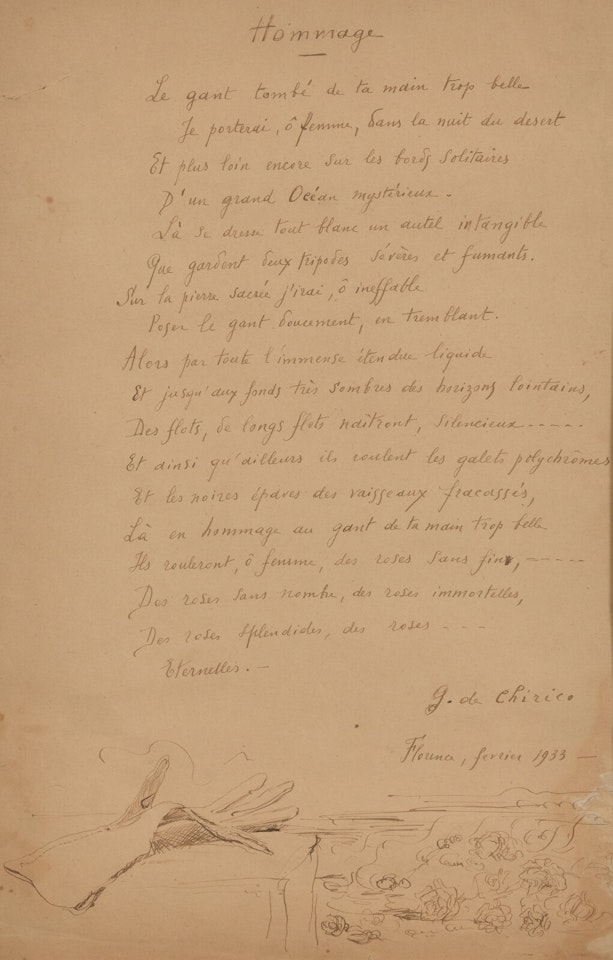 Hommage
Le gant tombé de ta main trop belle
Je porterai, ô femme, dans la nuit du desert
Et plus loin encore sur les bords solitaires
D'un grand Océan mystérieux.
Là se dresse tout blanc un autel intangible
Que gardent deux tripodes sévères et fumants.
Sur la pierre sacrée j'irai, ô ineffable
Poser le gant doucement, en tremblant.
Alors par toute l'immense étendue liquide
Et jusqu'aux fonds très sombres des horizons lointains,
Des flots, de longs flots naîtront, silencieux-----
Et ainsi qu'ailleurs ils roulent les galets polychrômes
Et les noires épaves des vaisseaux fracassés,
Là en hommage au gant de ta main trop belle
Ils rouleront, ô femme, des roses sans fin, -----
Des roses sans nombre, des roses immortelles,
Des roses splendides, des roses ---
Eternelles.-
G. de Chirico
Florence, fevrier 1933 —